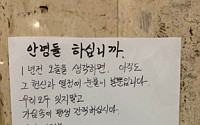 안녕들 하십니까.
1년전 오늘을 생각하면, 아직도
그 헌신과 열정에 눈물이 날뿐입니다.
우리모두 잊지말고
가슴속에 평생 간직하십시다.